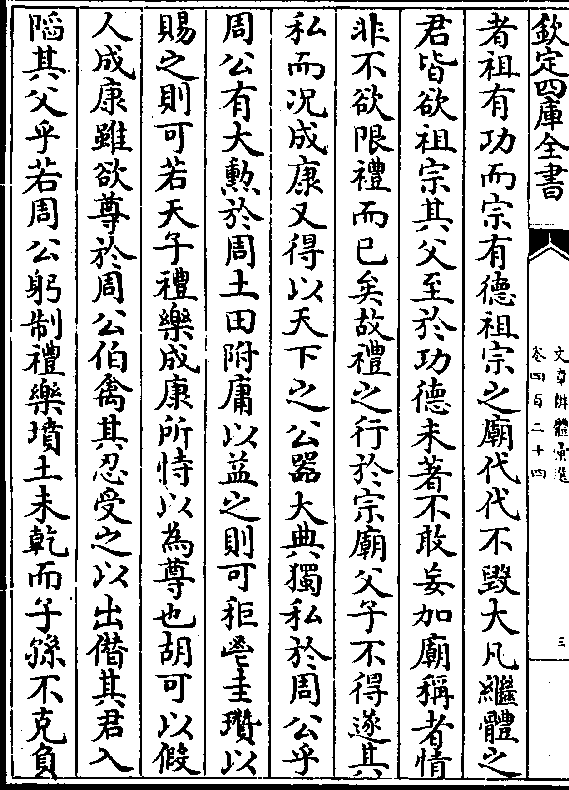 欽定四庫全書
文章辨體彙選
卷四百二十四
三
者祖有功而宗有德祖宗之廟代代不毀大凡繼體之
君皆欲祖宗其父至於功德未著不敢妄加廟稱者情
非不欲限禮而已矣故禮之行於宗廟父子不得遂其
私而况成康又得以天下之公器大典獨私於周公乎
周公有大勲於周土田附庸以益之則可秬鬯圭瓚以
賜之則可若天子禮樂成康所恃以為尊也胡可以假
人成康雖欲尊於周公伯禽其忍受之以出僭其君入
陷其父乎若周公躬制禮樂墳土未乾而子孫不克負